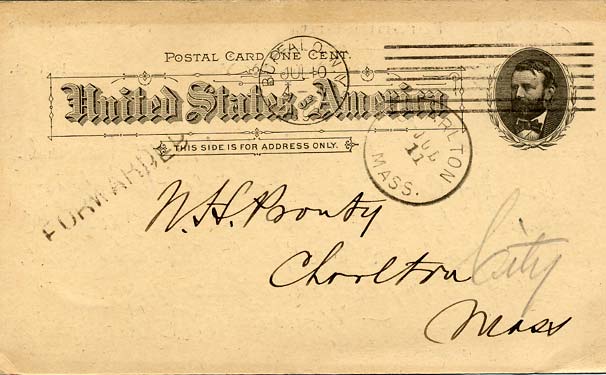 POSTAL CARD ONE CENT.
United States of America
THIS SIDE IS FOR ADDRESS ONLY.
BUFFALO, N.Y.
JUL 10
CHARLTON
JUL
11
MASS.
FORWARDED
N. H. Prouty
Charlton City
Mass